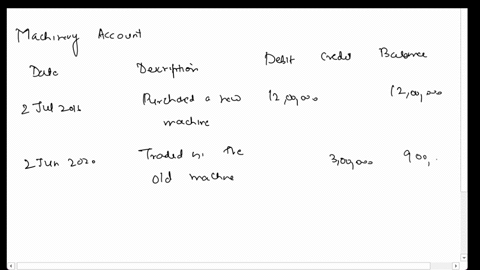 Machinery Account
Date Description Debit Credit Balance
2 Jul 2016 Purchased a new machine 12,00,000 12,00,000
2 Jun 2020 Traded in the old machine 3,00,000 900,